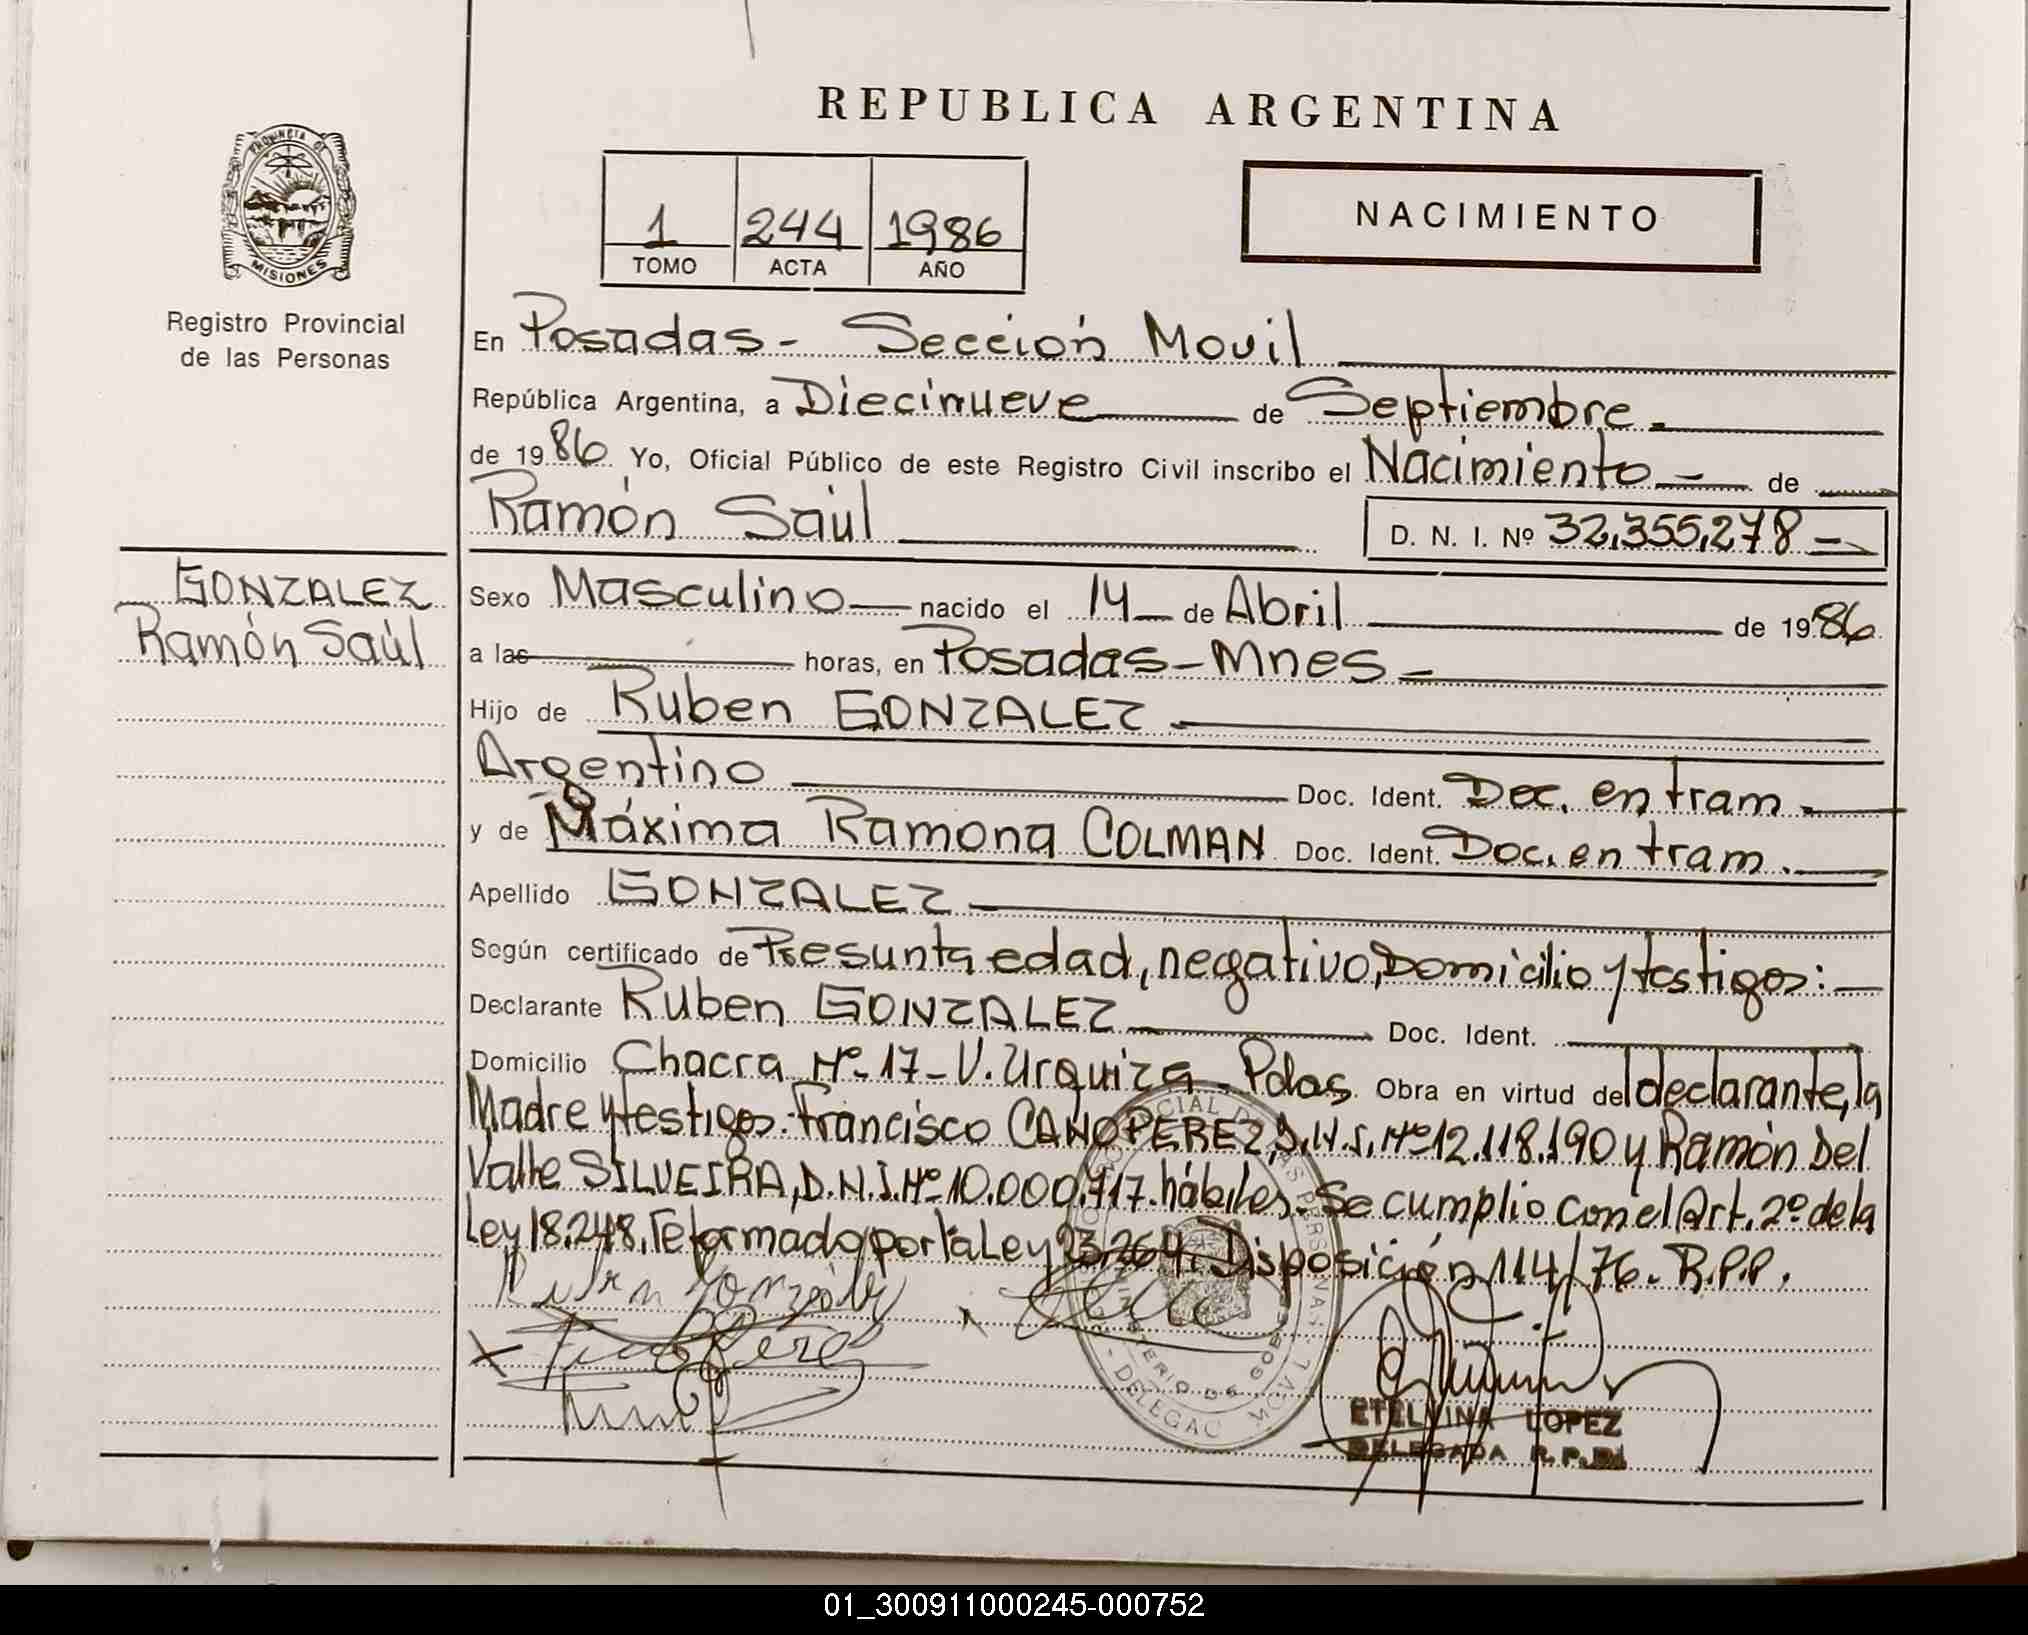 REPUBLICA ARGENTINA
PROVINCIA DE
MISIONES
Registro Provincial
de las Personas
1 244 1986
TOMO ACTA AÑO
NACIMIENTO
En Posadas - Sección Movil
República Argentina, a Diecinueve de Septiembre.
de 1986 Yo, Oficial Público de este Registro Civil inscribo el Nacimiento de
Ramón Saúl D. N. I. Nº 32,355,278
GONZALEZ
Ramón Saúl
Sexo Masculino nacido el 14 de Abril de 1986
a las horas, en Posadas - Mnes -
Hijo de Ruben GONZALEZ
Argentino Doc. Ident. Doc. en tram.
y de Máxima Ramona COLMAN Doc. Ident. Doc. en tram.
Apellido GONZALEZ
Según certificado de Presunta edad, negativo, Domicilio y testigos:
Declarante Ruben GONZALEZ Doc. Ident.
Domicilio Chacra Nº 17 - V. Urquiza - Pdas. Obra en virtud del declarante, la
Madre y testigos: Francisco CANO PEREZ, D.N.I. Nº 12.118.190 y Ramón Del
Valle SILVEIRA, D.N.I. Nº 10.000.717. hábiles. Se cumplio con el Art. 2º de la
Ley 18.248, reformado por la Ley 23.264. Disposición 114/76. R.P.P.
Ruben González
Perez
MINISTERIO DE GOBIERNO
ETELVINA LOPEZ
DELEGADA R.P.P.
01_300911000245-000752